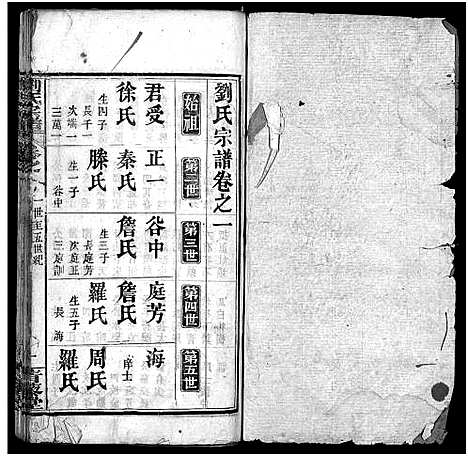 劉氏宗譜卷之一
始祖
君受
徐氏
生四子
長千一
次端一
三萬一
第二世
正一
秦氏
滕氏
生一子
谷中
第三世
谷中
詹氏
生三子
長庭芳
次庭正
三庭訓
第四世
庭芳
詹氏
羅氏
生五子
長海
第五世
海
庠士
周氏
羅氏
一世至五世紀